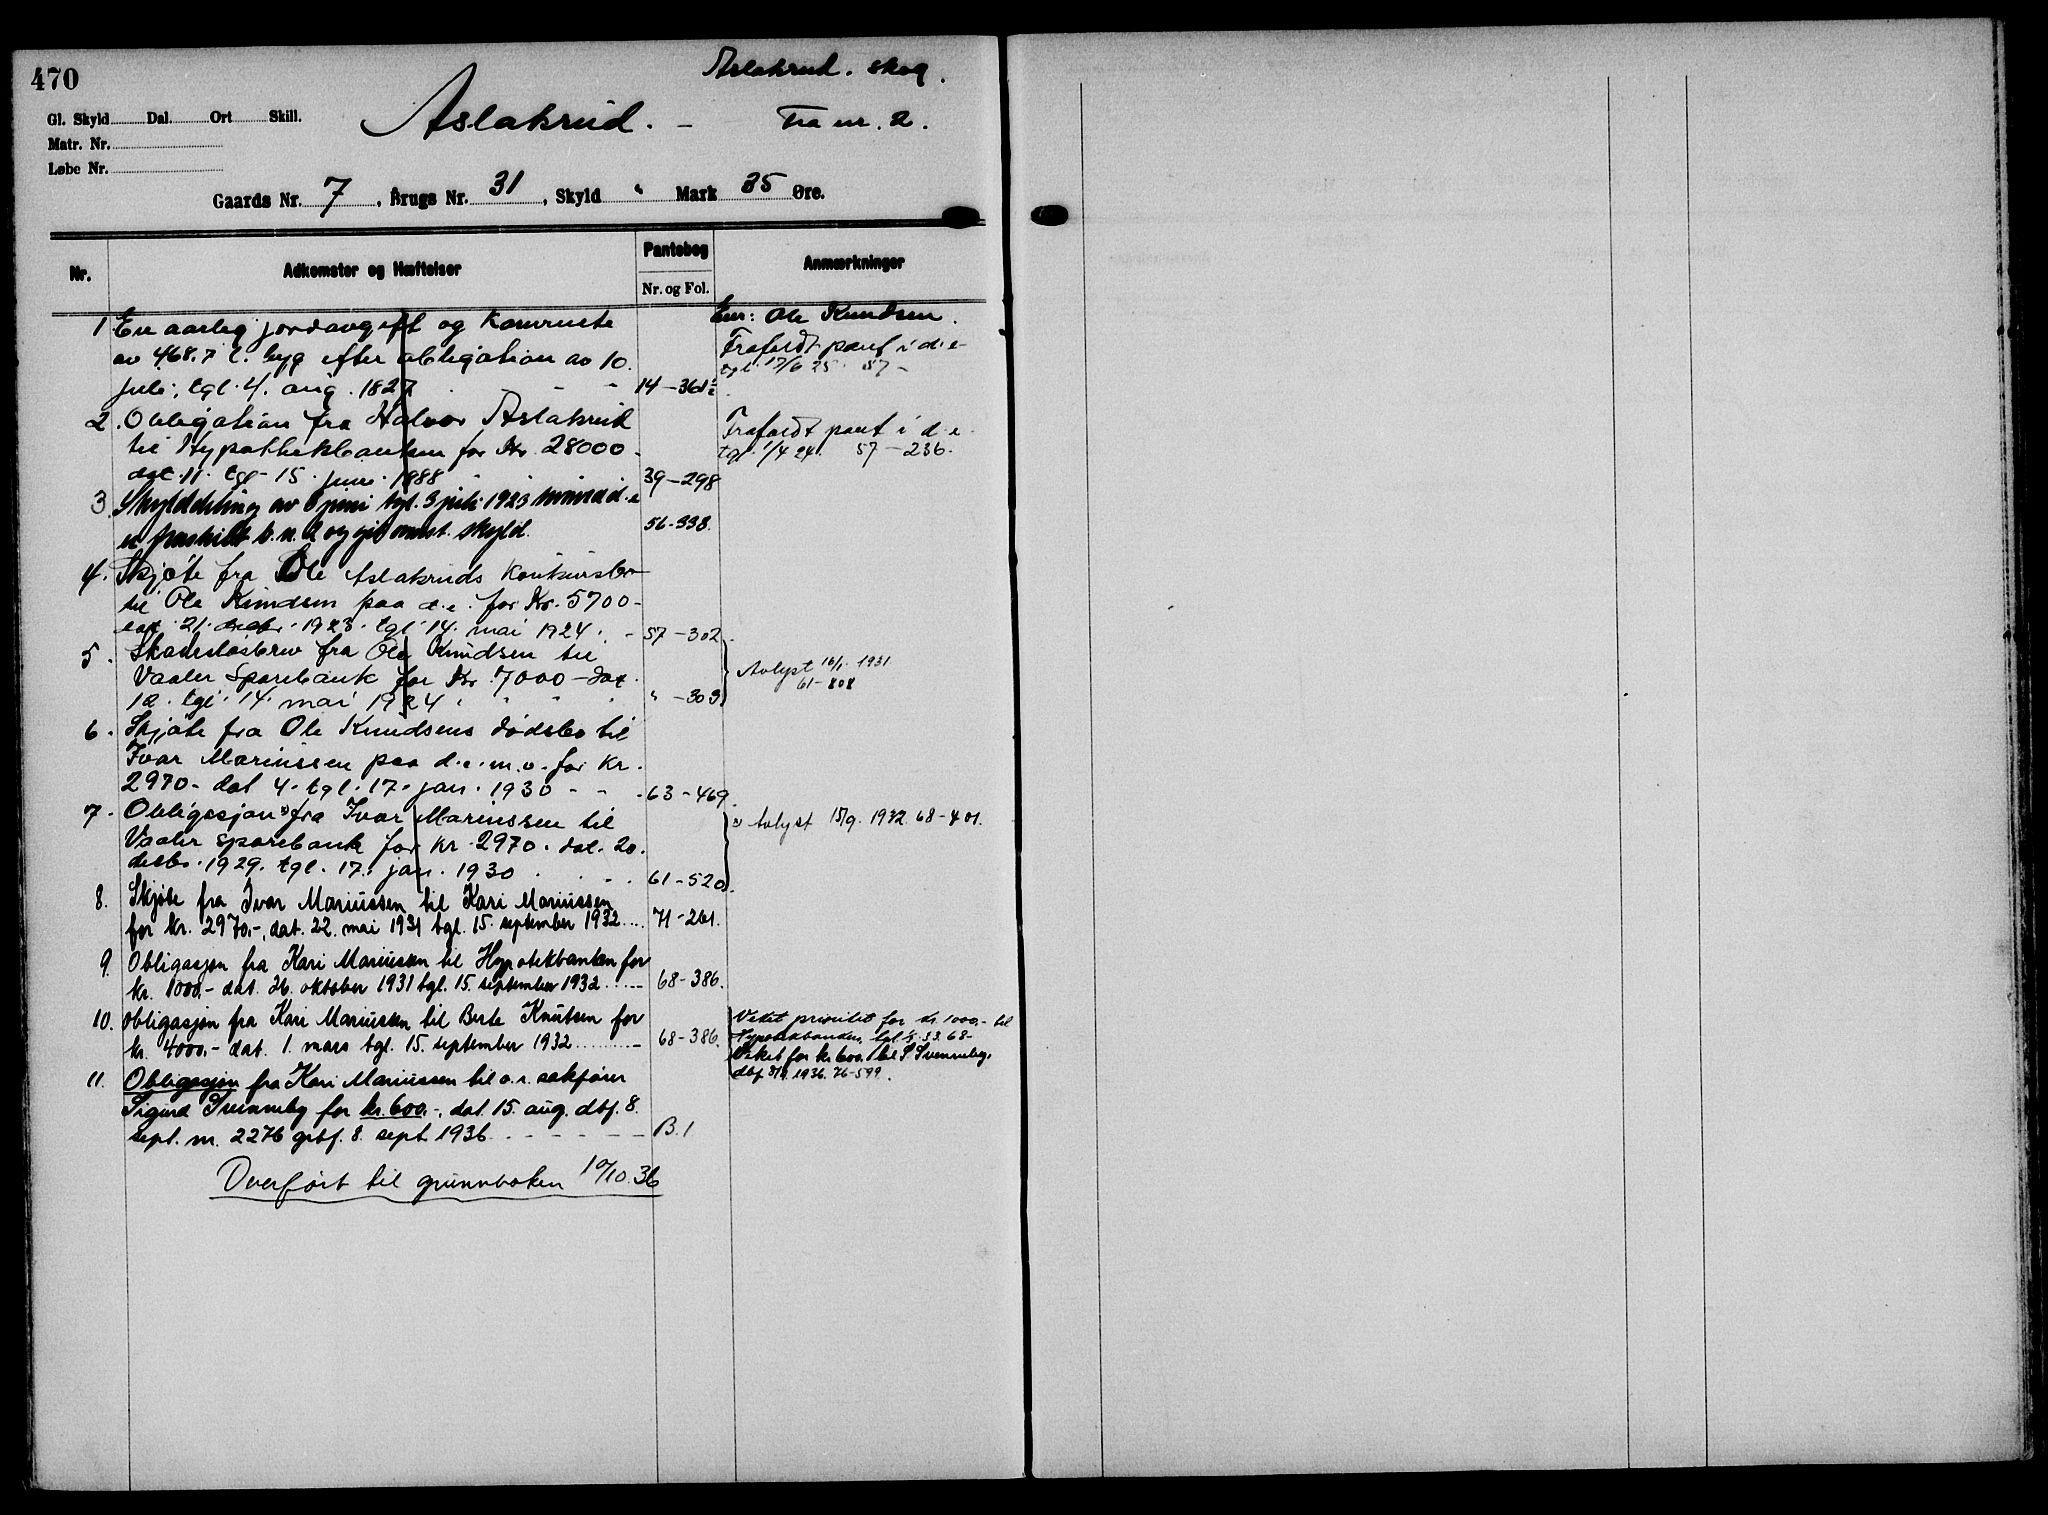 470
Aslakrud. skog.
Gl. Skyld Dal. Ort Skill.
Aslakrud. – Fra nr. 2.
Matr. Nr.
Løbe Nr.
Gaards Nr. 7, Brugs Nr. 31, Skyld " Mark 35 Øre.
Nr.
Adkomster og Hæftelser
Pantebog
Nr. og Fol.
Anmærkninger
1 En aarlig jordavgift og kornrente
av 468.7 l. byg efter obligation av 10.
juli, tgl. 4. aug. 1827 14–361
Eier: Ole Knudsen.
Frafaldt pant i d.e.
tgl. 17/6 25. 57–
2. Obligation fra Halvor Aslakrud
til Hypothekbanken for Kr. 28000.
dat. 11. tgl. 15. juni 1888 39–298
Frafaldt pant i d.e.
tgl. 1/4 24. 57–236.
3. Skylddeling av juni tgl. 3 juli 1923 hvorved d.e.
er fraskilt b.n. 2 og git anst. skyld. 56-338.
4. Skjøte fra Ole Aslakruds konkursbo
til Ole Knudsen paa d.e. for Kr. 5700–
dat. 21. decbr. 1923. tgl. 14. mai 1924. 57–302.
5. Skadesløsbrev fra Ole Knudsen til
Vaaler Sparebank for Kr. 7000– dat.
12. tgl. 14. mai 1924 " –303
Avlyst 16/1 1931
61–808
6. Skjøte fra Ole Knudsens dødsbo til
Ivar Mariussen paa d.e. m.v. for kr.
2970.– dat 4. tgl. 17. jan. 1930 – – . 63–469.
7. Obligasjon x) fra Ivar Mariussen til
Vaaler sparebank for kr. 2970. dat. 20.
desbr. 1929. tgl. 17. jan. 1930 . 61–520.
x) Avlyst 15/9. 1932. 68–401.
8. Skjøte fra Ivar Mariussen til Kari Mariussen
for kr. 2970.–, dat. 22. mai 1931 tgl. 15. september 1932.... 71-261.
9. Obligasjon fra Kari Mariussen til Hypotekbanken for
kr. 1000.– dat. 26. oktober 1931 tgl. 15. september 1932. 68-386.
10. Obligasjon fra Kari Mariussen til Berte Knutsen for
kr. 4000.– dat. 1. mars tgl. 15. september 1932 ........ – 68-386.
Veket prioritet for kr. 1000.– til
Hypotekbanken, tgl. 33. 68–
Veket for kr. 600.– til S Svenneby.
dbf. 8/9. 1936. 76-599.
11. Obligasjon fra Kari Mariussen til o.r. sakfører
Sigurd Svenneby for kr. 600.–, dat. 15. aug. dbf. 8.
sept. nr. 2276 grbf. 8. sept. 1936. – – – – – B. 1
Overført til grunnboken 10/10. 36